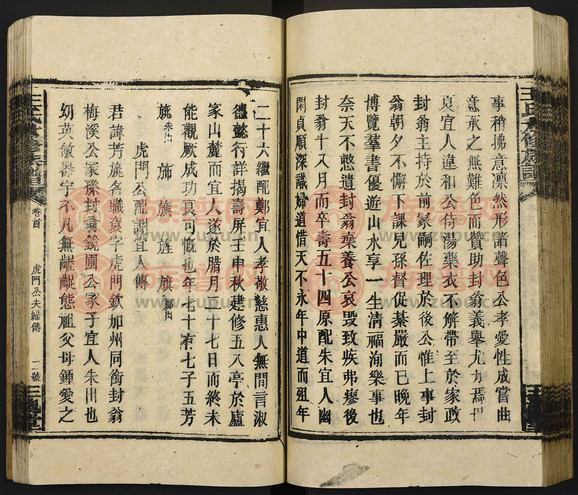 事稍拂意凛然形諸聲色公孝愛性成嘗曲
意承之無難色而贊助封翁義舉尤力焉
夏宜人違和公侍湯藥衣不解帶至於家政
封翁主持於前冢嗣佐理於後公惟上事封
翁朝夕不懈下課兒孫督促綦嚴而已晚年
博覽羣書優遊山水享一生清福洵樂事也
奈天不憖遺封翁棄養公哀毀致疾弗瘳後
封翁十八月而卒壽五十四原配朱宜人幽
閑貞順深識婦道惜天不永年中道而殂年
二十六繼配鄭宜人孝敬慈惠人無間言淑
德懿行詳揭壽屏壬申秋建修五入亭於廬
家山麓而宜人遂於臘月二十七日而終未
能觀厥成功良可慨也年七十有七子五芳
旒 朱出 斾 旗 旌 旟 鄭出
虎門公配謝宜人傳
君諱芳旒名職衷字虎門欽加州同銜封翁
梅溪公冢孫封翁鏡圃公冢子宜人朱出也
幼英敏器宇不凡無齷齪態祖父母鍾愛之
王氏六修族譜
卷首
虎門公夫婦傳
二號
三槐堂